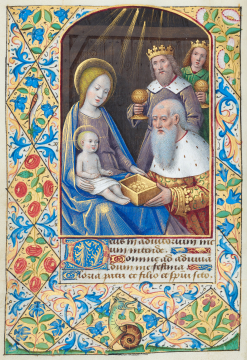 Deus in adiutorium me
um intende.
Domine ad adiuua
dum me festina
Gloria patri et filio et spiritui scto.